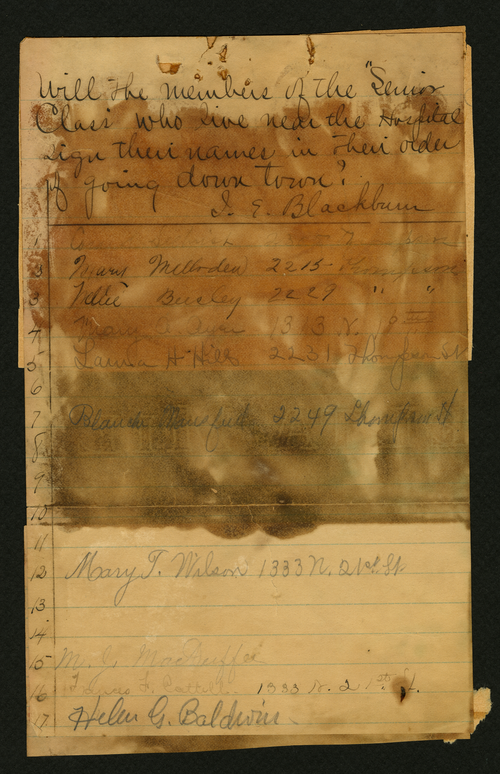 Will the members of the "Senior
Class" who live near the Hospital
sign their names in their order
of going down town?
I. E. Blackburn
1
2 Mary Melloden 2215 Thompson
3 Tillie Beesley 2229 " "
4 Mary 1313 N. 18
5 Laura H. Hills 2231 Thompson St
6
7 Blanch 2249 Thompson St
8
9
10
11
12 Mary T. Wilson 1333 N. 21st St.
13
14
15 M. J. MacDuffee
16 1333 N. 21st St.
17 Helen G. Baldwin